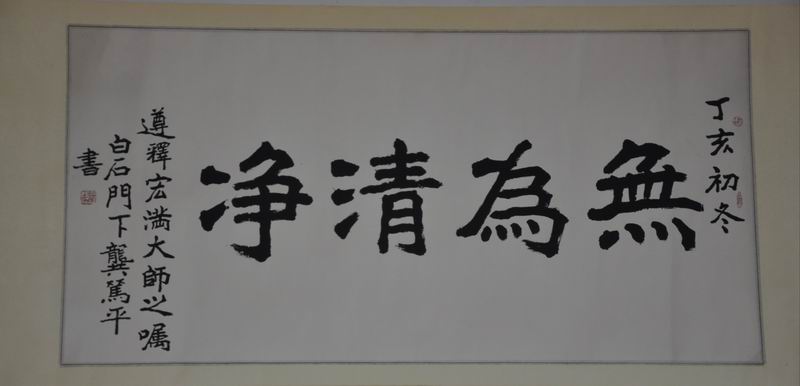 丁亥初冬
無為清净
遵釋宏満大師之嘱
白石門下龔篤平
書